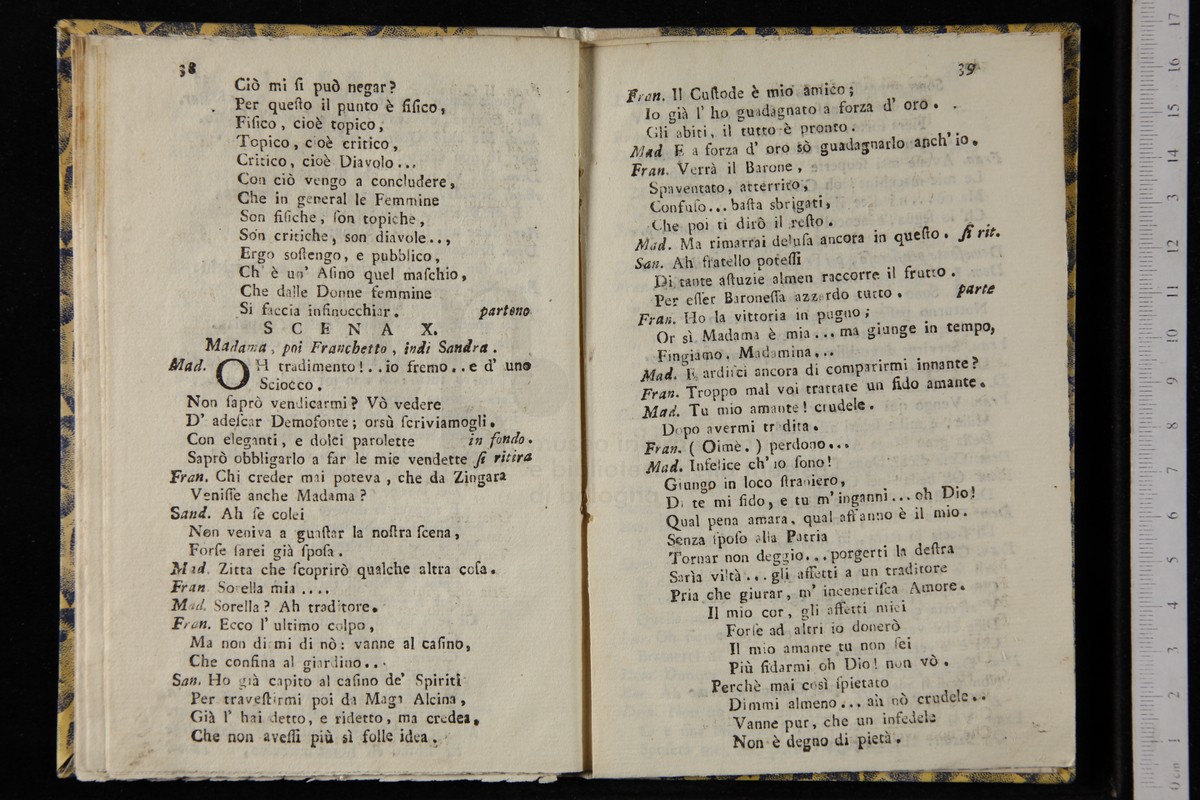 38
Ciò mi ſi può negar?
Per queſto il punto è fiſico,
Fiſico, cioè topico,
Topico, cioè critico,
Critico, cioè Diavolo...
Con ciò vengo a concludere,
Che in general le Femmine
Son fiſiche, ſon topiche,
Son critiche, son diavole..,
Ergo ſoſtengo, e pubblico,
Ch' è un' Aſino quel maſchio,
Che dalle Donne femmine
Si faccia infinocchiar. parteno
SCENA X.
Madama, poi Franchetto, indi Sandra.
Mad. OH tradimento!..io fremo..e d' uno
Sciocco.
Non ſaprò vendicarmi? Vò vedere
D' adeſcar Demofonte; orsù ſcriviamogli.
Con eleganti, e dolci parolette in fondo.
Saprò obbligarlo a far le mie vendette ſi ritira
Fran. Chi creder mai poteva, che da Zingara
Veniſſe anche Madama?
Sand. Ah ſe colei
Non veniva a guaſtar la noſtra ſcena,
Forſe ſarei già ſpoſa.
Mad. Zitta che ſcoprirò qualche altra coſa.
Fran Sorella mia ....
Mad. Sorella? Ah traditore.
Fran. Ecco l' ultimo colpo,
Ma non dirmi di nò: vanne al caſino,
Che confina al giardino...
San. Ho già capito al caſino de' Spiriti
Per traveſtirmi poi da Maga Alcina,
Già l' hai detto, e ridetto, ma credea,
Che non aveſſi più sì folle idea.
39
Fran. Il Cuſtode è mio amico;
Io già l' ho guadagnato a forza d' oro.
Gli abiti, il tutto è pronto.
Mad E a forza d' oro sò guadagnarlo anch' io.
Fran. Verrà il Barone,
Spaventato, atterrito,
Confuſo... baſta sbrigati,
Che poi ti dirò il reſto.
Mad. Ma rimarrai deluſa ancora in queſto. ſi rit.
San. Ah fratello poteſſi
Di tante aſtuzie almen raccorre il frutto.
Per eſſer Baroneſſa azzardo tutto. parte
Fran. Ho la vittoria in pugno;
Or sì Madama è mia... ma giunge in tempo,
Fingiamo. Madamina...
Mad. E ardiſci ancora di comparirmi innante?
Fran. Troppo mal voi trattate un fido amante.
Mad. Tu mio amante! crudele.
Dopo avermi tradita.
Fran. (Oimè.) perdono...
Mad. Infelice ch' io ſono!
Giungo in loco ſtraniero,
Di te mi fido, e tu m' inganni... oh Dio!
Qual pena amara, qual affanno è il mio.
Senza ſpoſo alla Patria
Tornar non deggio... porgerti la deſtra
Sarìa viltà... gli affetti a un traditore
Pria che giurar, m' inceneriſca Amore.
Il mio cor, gli affetti miei
Forſe ad altri io donerò
Il mio amante tu non ſei
Più fidarmi oh Dio! non vò.
Perchè mai così ſpietato
Dimmi almeno... ah nò crudele..
Vanne pur, che un infedele
Non è degno di pietà.